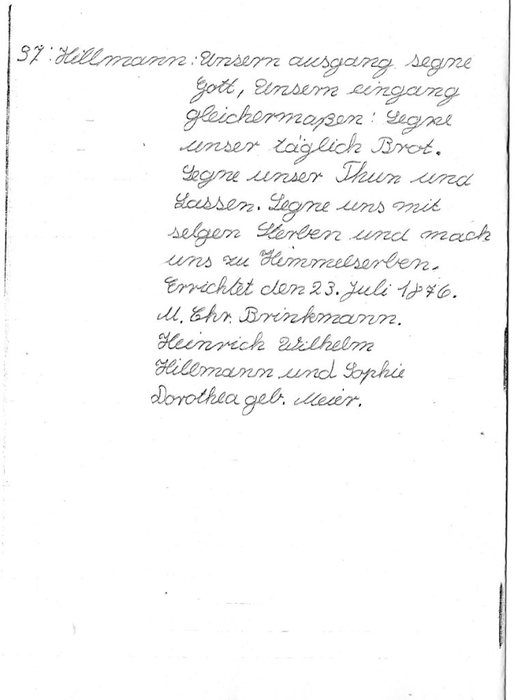 37: Hillmann: Unsern ausgang segne
Gott, Unsern eingang
gleichermaßen! Segne
unser täglich Brot.
Segne unser Thun und
Lassen. Segne uns mit
selgen Sterben und mach
uns zu Himmelserben.
Errichtet den 23. Juli 1876.
M. Chr. Brinkmann.
Heinrich Wilhelm
Hillmann und Sophie
Dorothea geb. Meier.